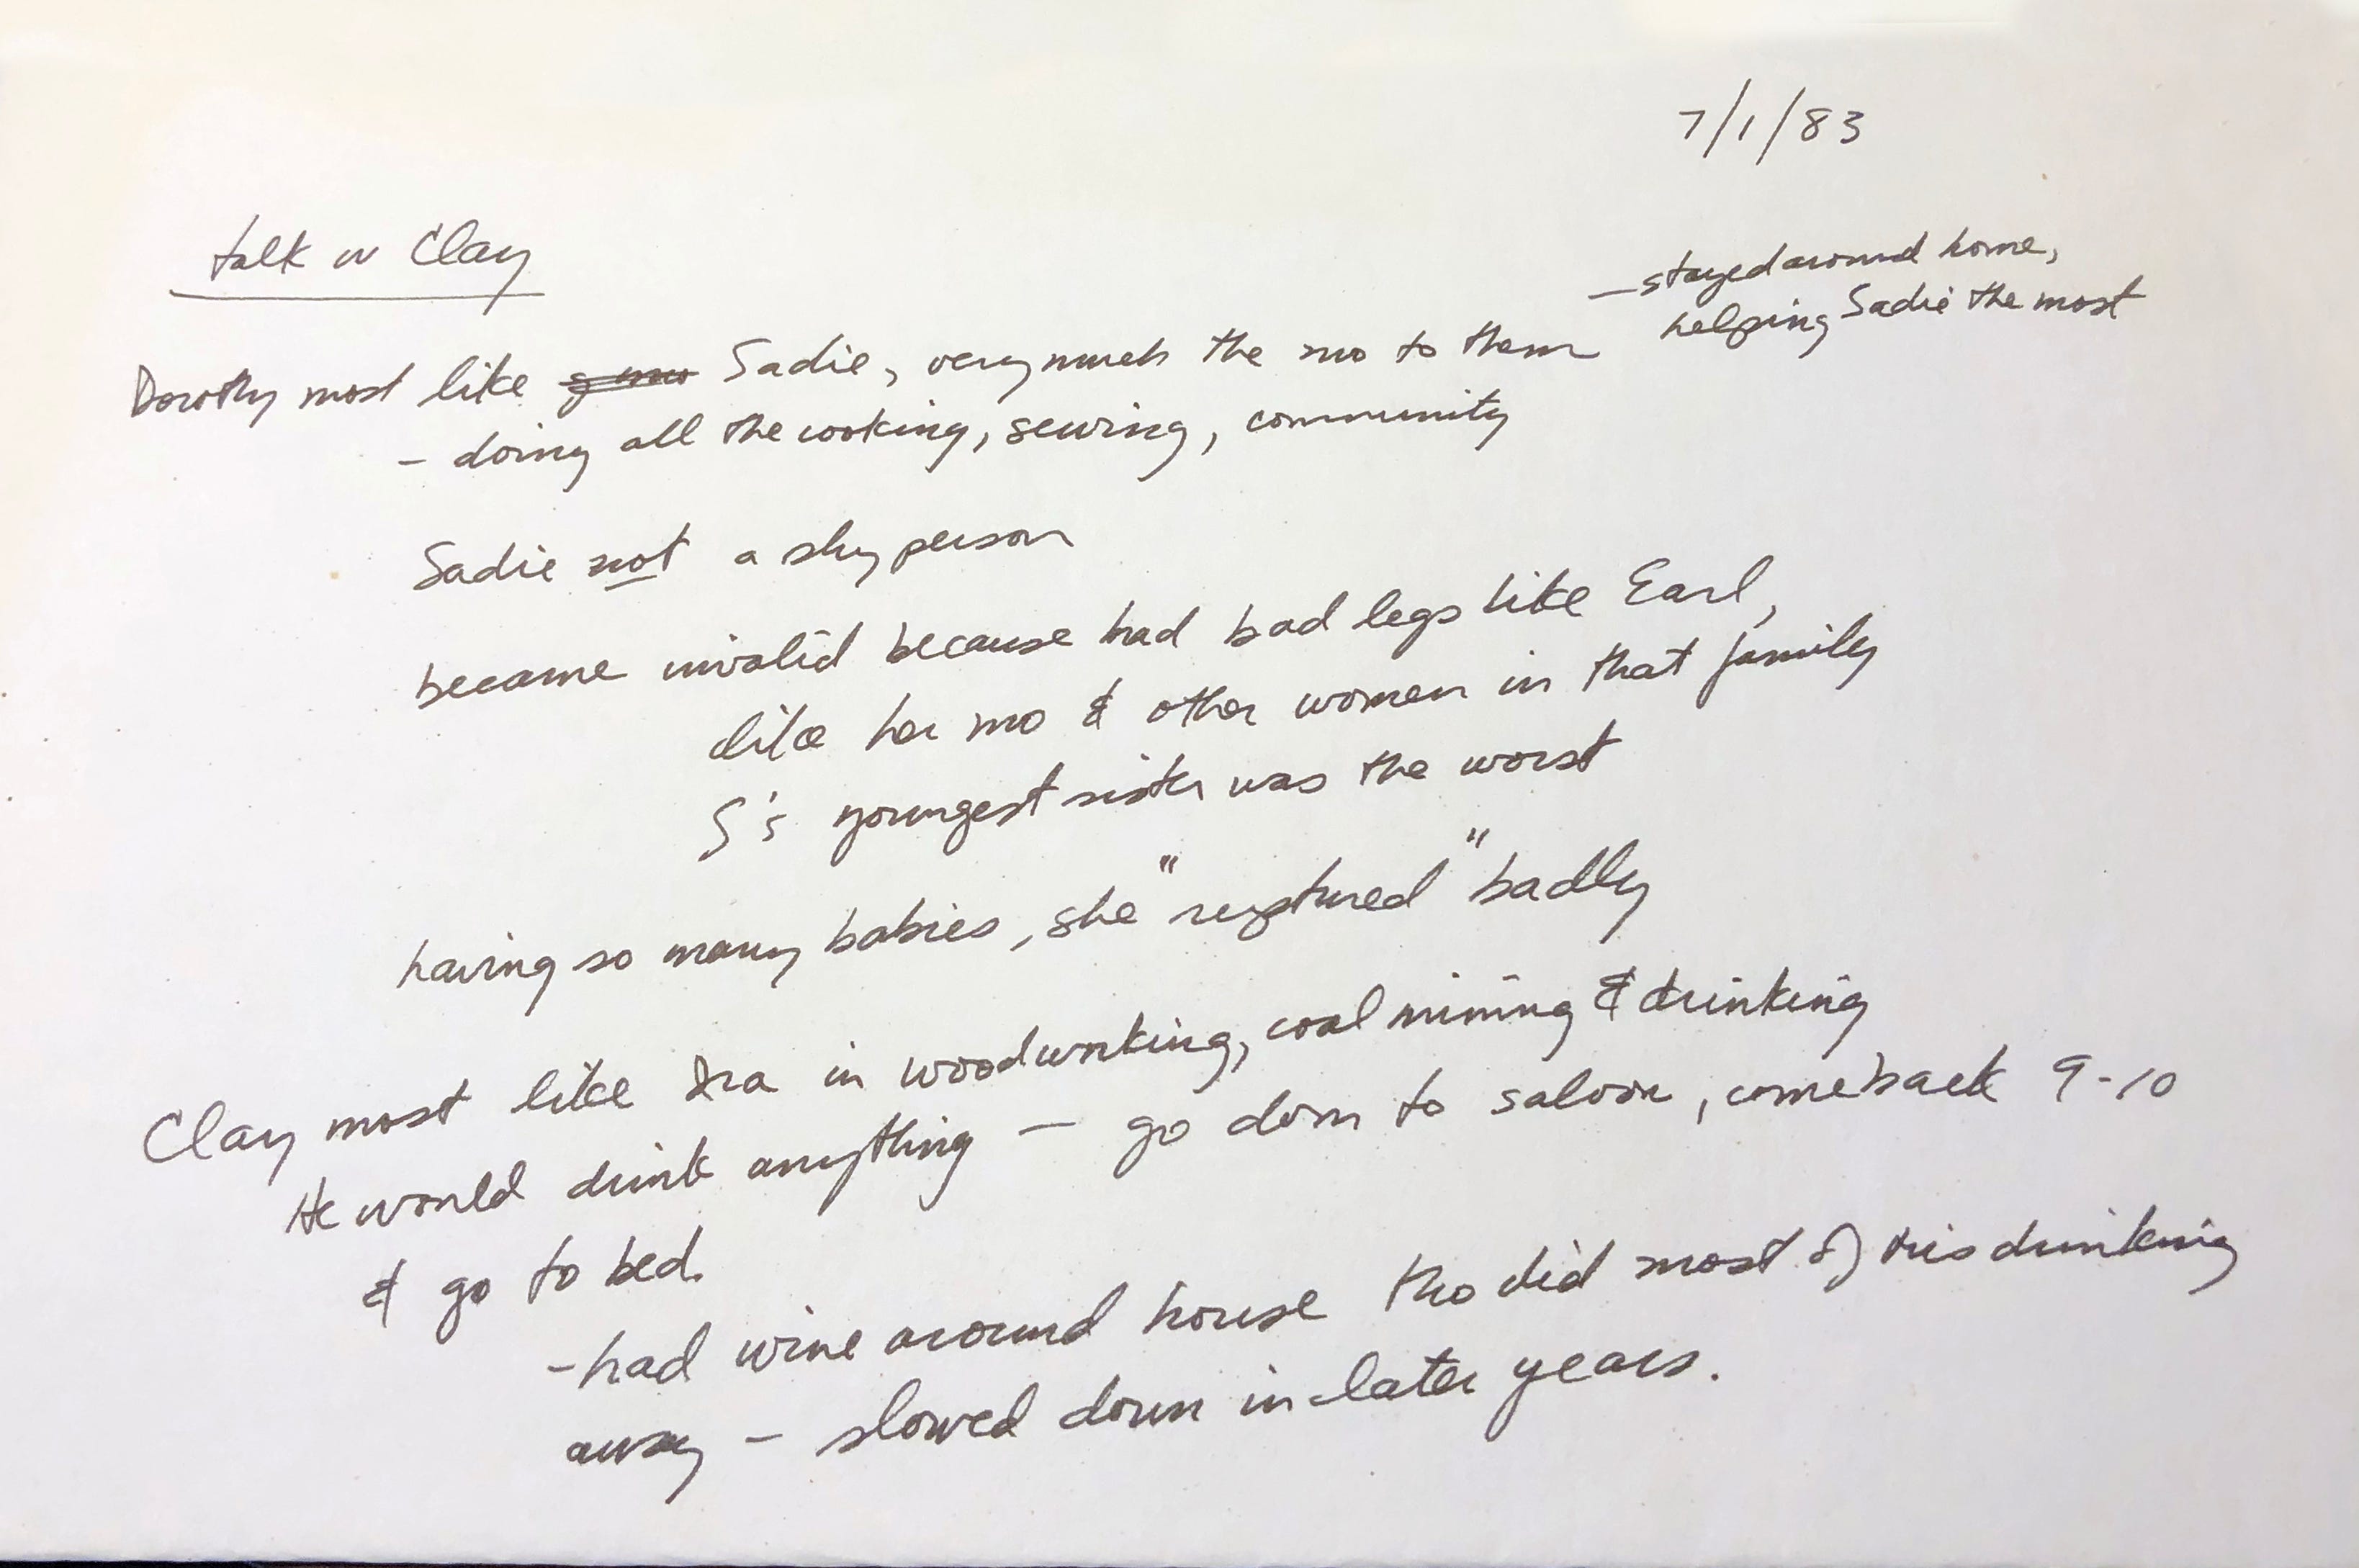 7/1/83
talk w Clay
Dorothy most like Sadie, very much the mo to them
— stayed around home,
helping Sadie the most
- doing all the cooking, sewing, community
Sadie not a shy person
became invalid because had bad legs like Earl,
like her mo & other women in that family
S's youngest sister was the worst
having so many babies, she "ruptured" badly
Clay most like Ira in woodworking, coal mining & drinking
He would drink anything — go down to saloon, come back 9-10
& go to bed.
- had wine around house tho did most of his drinking
away — slowed down in later years.